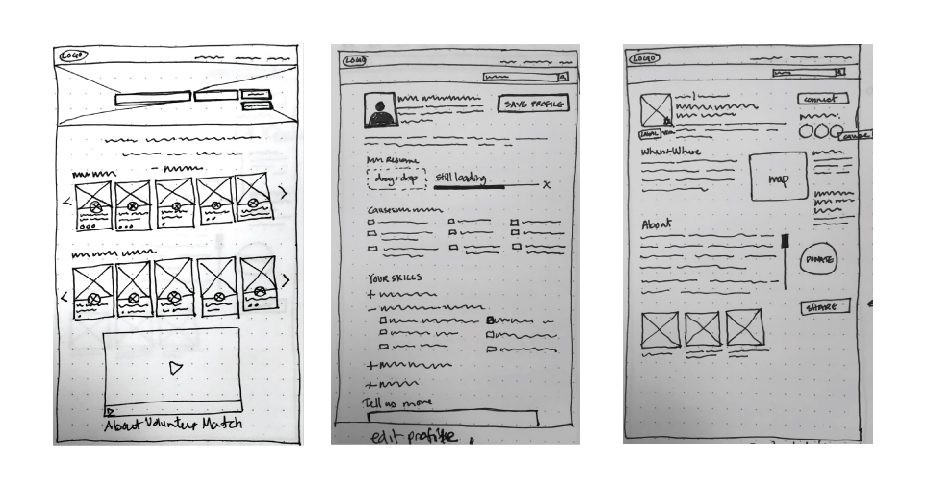 LOGO
About Volunteer Match
LOGO
SAVE PROFILE
Resume
drag·drop
still loading
X
Causes
YOUR SKILLS
Tell us more
edit profile
LOGO
connect
When+Where
map
About
DONATE
SHARE